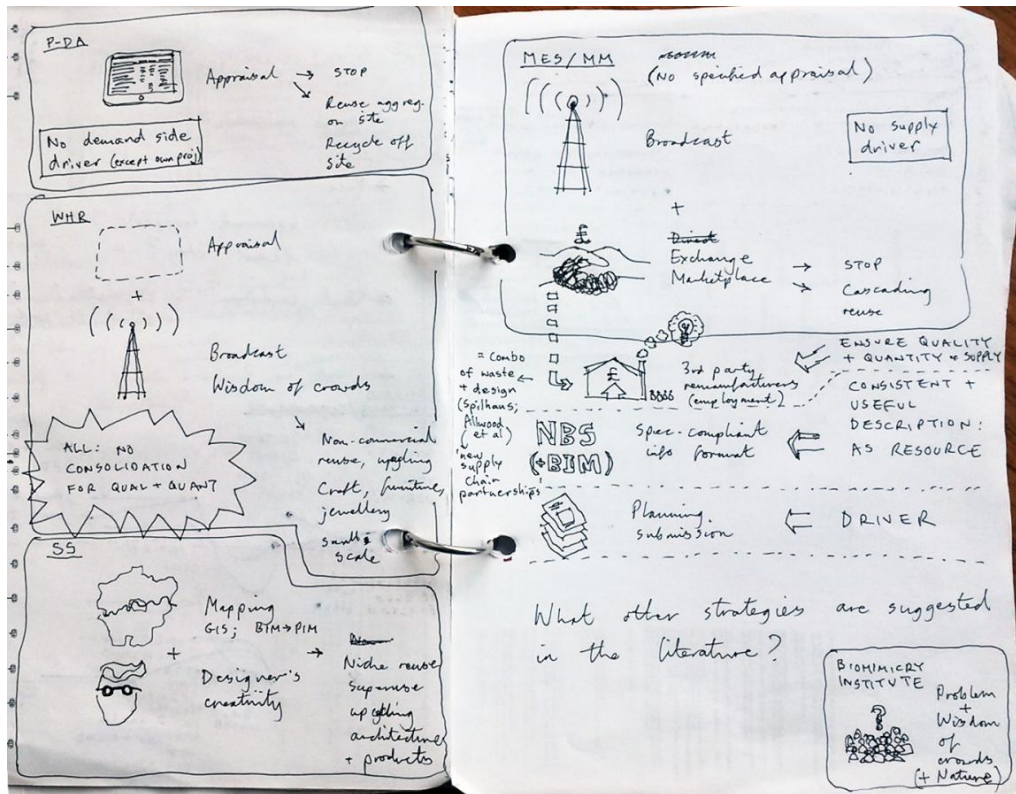 P-DA
Appraisal → STOP
Reuse aggreg.
on site
Recycle off
site
No demand side
driver (except own proj)
WHR
Appraisal
+
Broadcast
Wisdom of crowds
Non-commercial
reuse, upcycling
Craft, furniture,
jewellery
small
scale
ALL: NO
CONSOLIDATION
FOR QUAL + QUANT
SS
Mapping
GIS; BIM→PIM
+
Designer's
creativity
→
Niche reuse
superuse
upcycling
architecture
+ products
MES/MM
(No specified appraisal)
Broadcast
No supply
driver
+
£
Direct
Exchange
Marketplace
→ STOP
Cascading
reuse
= combo
of waste
+ design
(Spilhaus;
Allwood
et al)
'new
supply
chain
partnerships'
£
3rd party
remanufacturers
(employment)
ENSURE QUALITY
+ QUANTITY SUPPLY
NBS
(+BIM)
Spec-compliant
info format
CONSISTENT +
USEFUL
DESCRIPTION:
AS RESOURCE
Planning
submission
DRIVER
What other strategies are suggested
in the literature?
BIOMIMICRY
INSTITUTE
?
Problem
+
Wisdom
of
crowds
(+ Nature)